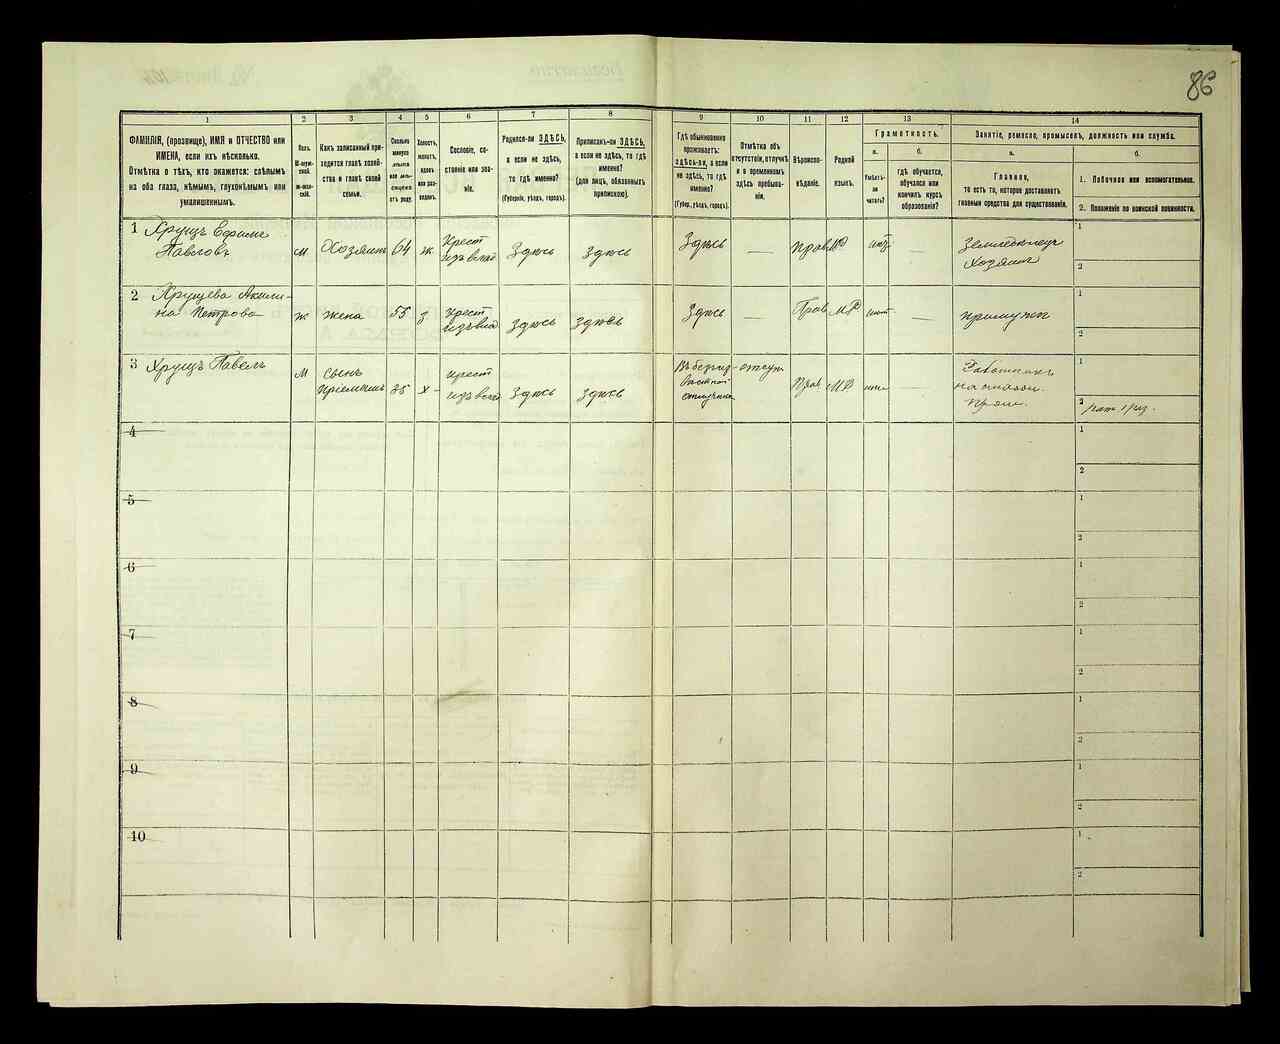 86
1
2
3
4
5
6
7
8
9
10
11
12
13
14
ФАМИЛІЯ, (прозвище), ИМЯ и ОТЧЕСТВО или
ИМЕНА, если ихъ нѣсколько.
Отмѣтка о тѣхъ, кто окажется: слѣпымъ
на оба глаза, нѣмымъ, глухонѣмымъ или
умалишеннымъ.
Полъ.
М-муж-
ской.
Ж-жен-
скій.
Какъ записанный при-
ходится главѣ хозяй-
ства и главѣ своей
семьи.
Сколько
минуло
лѣтъ
отъ роду.
Холостъ,
женатъ,
вдовъ
или раз-
веденъ.
Сословіе, со-
стояніе или зва-
ніе.
Родился-ли ЗДѢСЬ,
а если не здѣсь,
то гдѣ именно?
(Губернія, уѣздъ, городъ).
Приписанъ-ли ЗДѢСЬ,
а если не здѣсь, то гдѣ
именно?
(для лицъ, обязанныхъ
припискою).
Гдѣ обыкновенно
проживаетъ:
здѣсь-ли, а если
не здѣсь, то гдѣ
именно?
(Губер., уѣздъ, городъ).
Отмѣтка объ
отсутствіи, отлучкѣ
и о временномъ
здѣсь пребыва-
ніи.
Вѣроиспо-
вѣданіе.
Родной
языкъ.
Грамотность.
а.
Умѣетъ-
ли
читать?
б.
гдѣ обучается,
обучался или
кончилъ курсъ
образованія?
Занятіе, ремесло, промыселъ, должность или служба.
а.
Главное,
то есть то, которое доставляетъ
главныя средства для существованія.
б.
1. Побочное или вспомогательное.
2. Положеніе по воинской повинности.
1 Хрущъ Ефимъ
Павловъ
м
Хозяинъ
64
ж
Крест
Здѣсь
Здѣсь
Здѣсь
—
Прав
МР
нѣт
—
Земледѣлецъ
Хозяинъ
1
2
2 Хрущева Акили-
на Петрова
ж
жена
55
з
Крест
Здѣсь
Здѣсь
Здѣсь
—
Прав
МР
нѣт
—
1
2
3 Хрущъ Павелъ
м
Сынъ
35
х
крест
Здѣсь
Здѣсь
Прав
МР
—
Работникъ
1
2
4
1
2
5
1
2
6
1
2
7
1
2
8
1
2
9
1
2
10
1
2